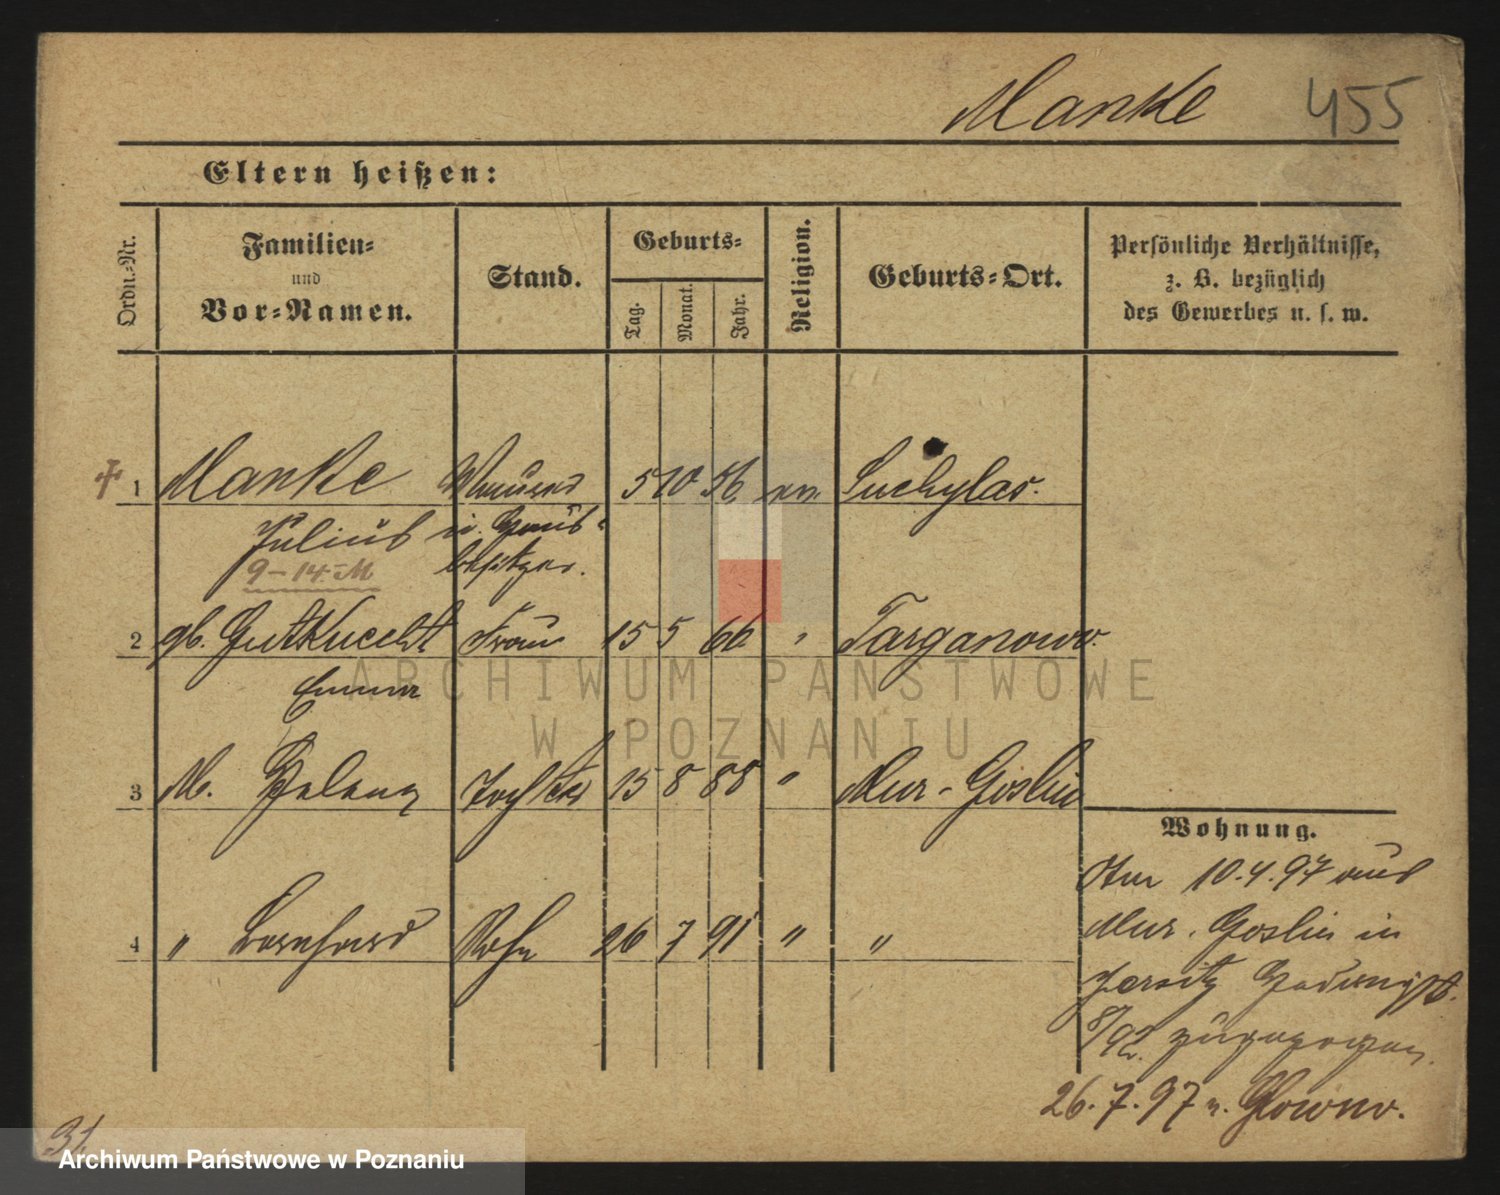 Manke 455
Eltern heißen:
Ordn.-Nr.
Familien-
und
Vor-Namen.
Stand.
Geburts-
Tag.
Monat.
Jahr.
Religion.
Geburts-Ort.
Persönliche Verhältnisse,
z. B. bezüglich
des Gewerbes u. s. w.
1 Manke Maurer 5 10 56 ev. Suchylas.
Julius u. Haus-
besitzer.
9-14. M
2 gb. Gutknecht Frau 15 5 66 " Targanowo.
Emma
3 M. Helena Tochter 15 8 88 " Mur-Goslin
4 " Bernhard Sohn 26 7 91 " "
Wohnung.
Am 10.4.97 aus
Mur. Goslin in
Jersitz Hedwigst.
8/92. zugezogen.
26.7.97 n. Glowno.
31.
ARCHIWUM PAŃSTWOWE
W POZNANIU
Archiwum Państwowe w Poznaniu